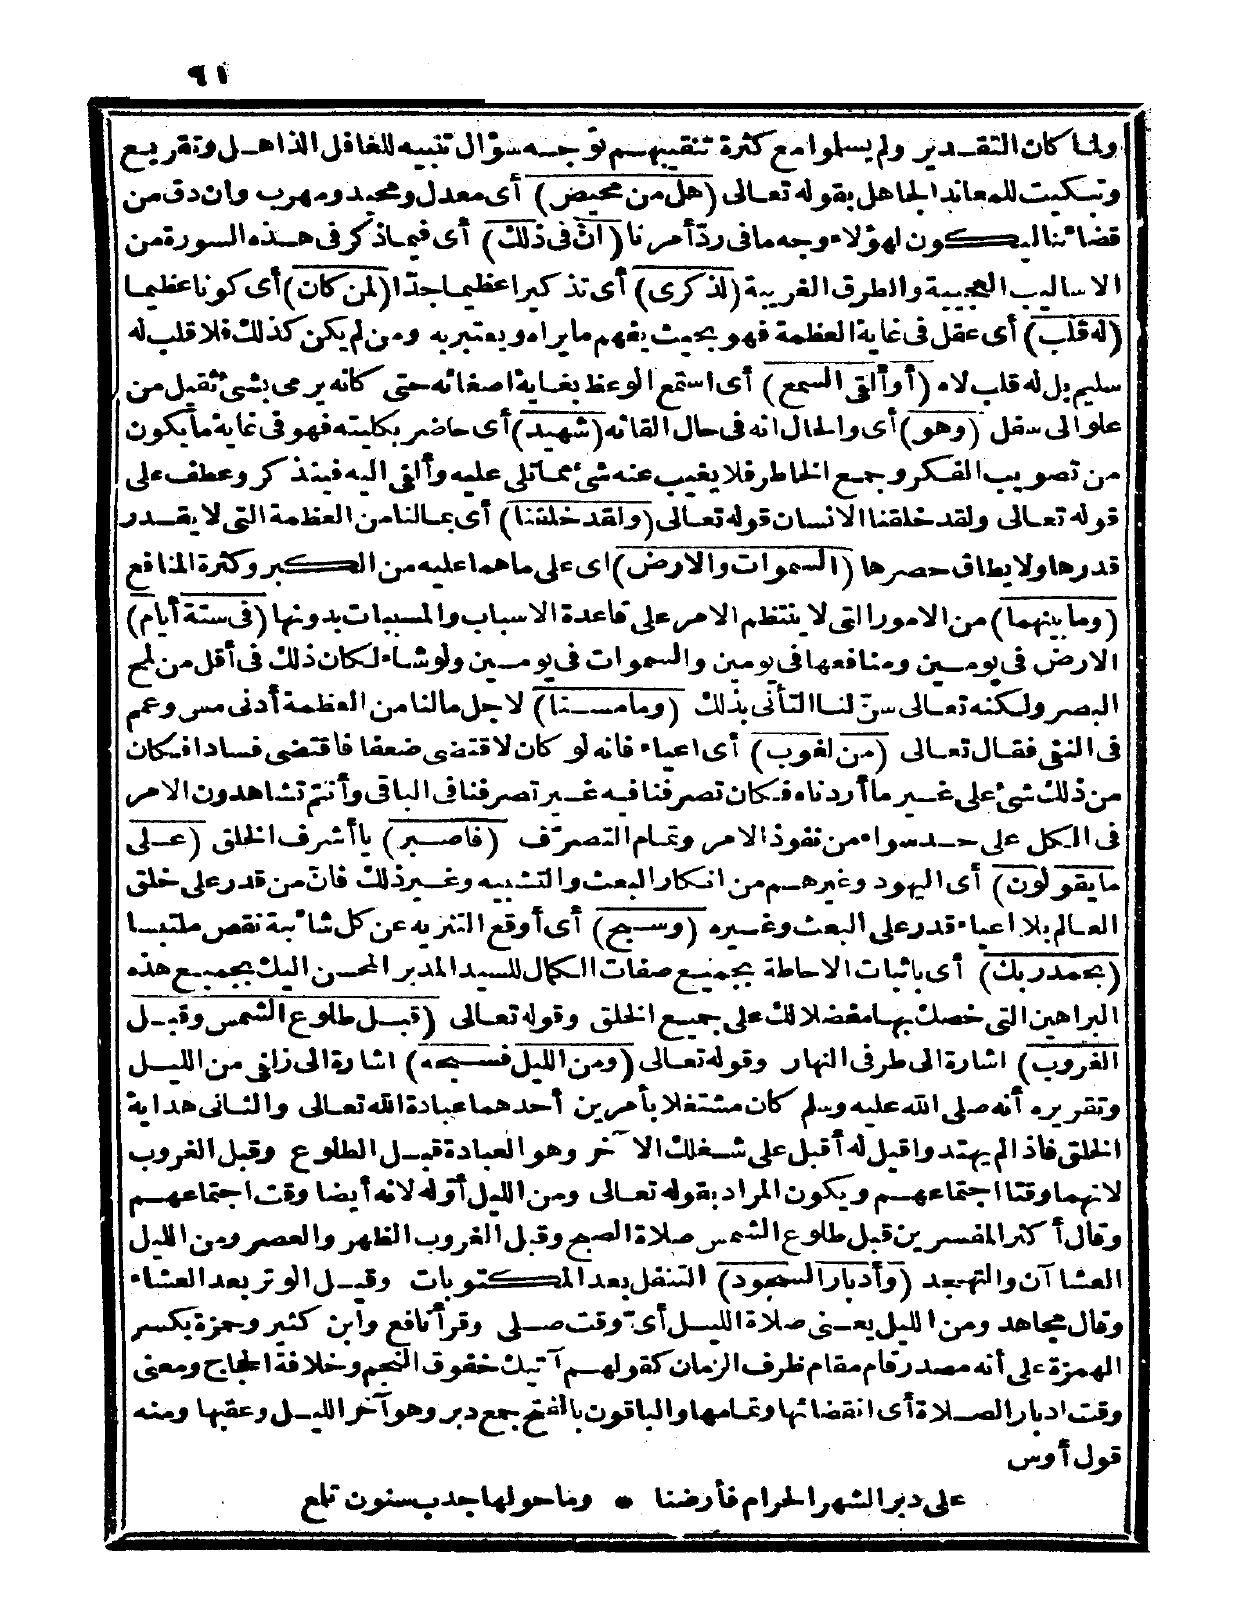 ٩١
ولما كان التقدير ولم يسلموا مع كثرة تنقيبهم توجه سؤال تنبيه للغافل الذاهل وتقريع
وتبكيت للمعاند الجاهل بقوله تعالى (هل من محيص) أى معدل ومحيد ومهرب وان دق من
قضائنا ليكون لهؤلاء وجه ما فى ردّ أمرنا (انّ فى ذلك) أى فيما ذكر فى هذه السورة من
الاساليب العجيبة والطرق الغريبة (لذكرى) أى تذكيرا عظيما جدّا (لمن كان) أى كونا عظيما
(له قلب) أى عقل فى غاية العظمة فهو بحيث يفهم ما يراه ويعتبر به ومن لم يكن كذلك فلا قلب له
سليم بل له قلب لاه (أو ألقى السمع) أى استمع الوعظ بغاية اصغائه حتى كانه يرمى بشئ ثقيل من
علو الى سفل (وهو) أى والحال انه فى حال القائه (شهيد) أى حاضر بكليته فهو فى غاية ما يكون
من تصويب الفكر وجمع الخاطر فلا يغيب عنه شئ مما تلى عليه وألقى اليه فيتذكر وعطف على
قوله تعالى ولقد خلقنا الانسان قوله تعالى (ولقد خلقنا) أى بما لنا من العظمة التى لا يقدر
قدرها ولا يطاق حصرها (السموات والارض) اى على ما هما عليه من الكبر وكثرة المنافع
(وما بينهما) من الامور التى لا ينتظم الامر على قاعدة الاسباب والمسببات بدونها (فى ستة أيام)
الارض فى يومين ومنافعها فى يومين والسموات فى يومين ولو شاء لكان ذلك فى أقل من لمح
البصر ولكنه تعالى سنّ لنا التأنى بذلك (وما مسنا) لاجل ما لنا من العظمة أدنى مس وعمم
فى النفى فقال تعالى (من لغوب) أى اعياء فانه لو كان لاقتضى ضعفا فاقتضى فسادا فكان
من ذلك شئ على غير ما أردناه فكان تصرفنا فيه غير تصرفنا فى الباقى وأنتم تشاهدون الامر
فى الكل على حد سواء من نفوذ الامر وتمام التصرّف (فاصبر) يا أشرف الخلق (على
ما يقولون) أى اليهود وغيرهم من انكار البعث والتشبيه وغير ذلك فانّ من قدر على خلق
العالم بلا اعياء قدر على البعث وغيره (وسبح) أى أوقع التنزيه عن كل شائبة نقص ملتبسا
(بحمد ربك) أى باثبات الاحاطة بجميع صفات الكمال للسيد المدبر المحسن اليك بجميع هذه
البراهين التى خصك بها مفضلا لك على جميع الخلق وقوله تعالى (قبل طلوع الشمس وقبل
الغروب) اشارة الى طرفى النهار وقوله تعالى (ومن الليل فسبحه) اشارة الى زلفى من الليل
وتقريره أنه صلى الله عليه وسلم كان مشتغلا بأمرين أحدهما عبادة الله تعالى والثانى هداية
الخلق فاذا لم يهتدوا قيل له أقبل على شغلك الآخر وهو العبادة قبل الطلوع وقبل الغروب
لانهما وقتا اجتماعهم ويكون المراد بقوله تعالى ومن الليل أوّله لانه أيضا وقت اجتماعهم
وقال أكثر المفسرين قبل طلوع الشمس صلاة الصبح وقبل الغروب الظهر والعصر ومن الليل
العشا آن والتهجد (وأدبار السجود) التنفل بعد المكتوبات وقيل الوتر بعد العشاء
وقال مجاهد ومن الليل يعنى صلاة الليل أىّ وقت صلى وقرأ نافع وابن كثير وحمزة بكسر
الهمزة على أنه مصدر قام مقام ظرف الزمان كقولهم آتيك خفوق النجم وخلافة الحجاج ومعنى
وقت ادبار الصلاة أى انقضائها وتمامها والباقون بالفتح جمع دبر وهو آخر الليل وعقبها ومنه
قول أوس
على دبر الشهر الحرام فأرضنا • وما حولها جدب سنون تلمع